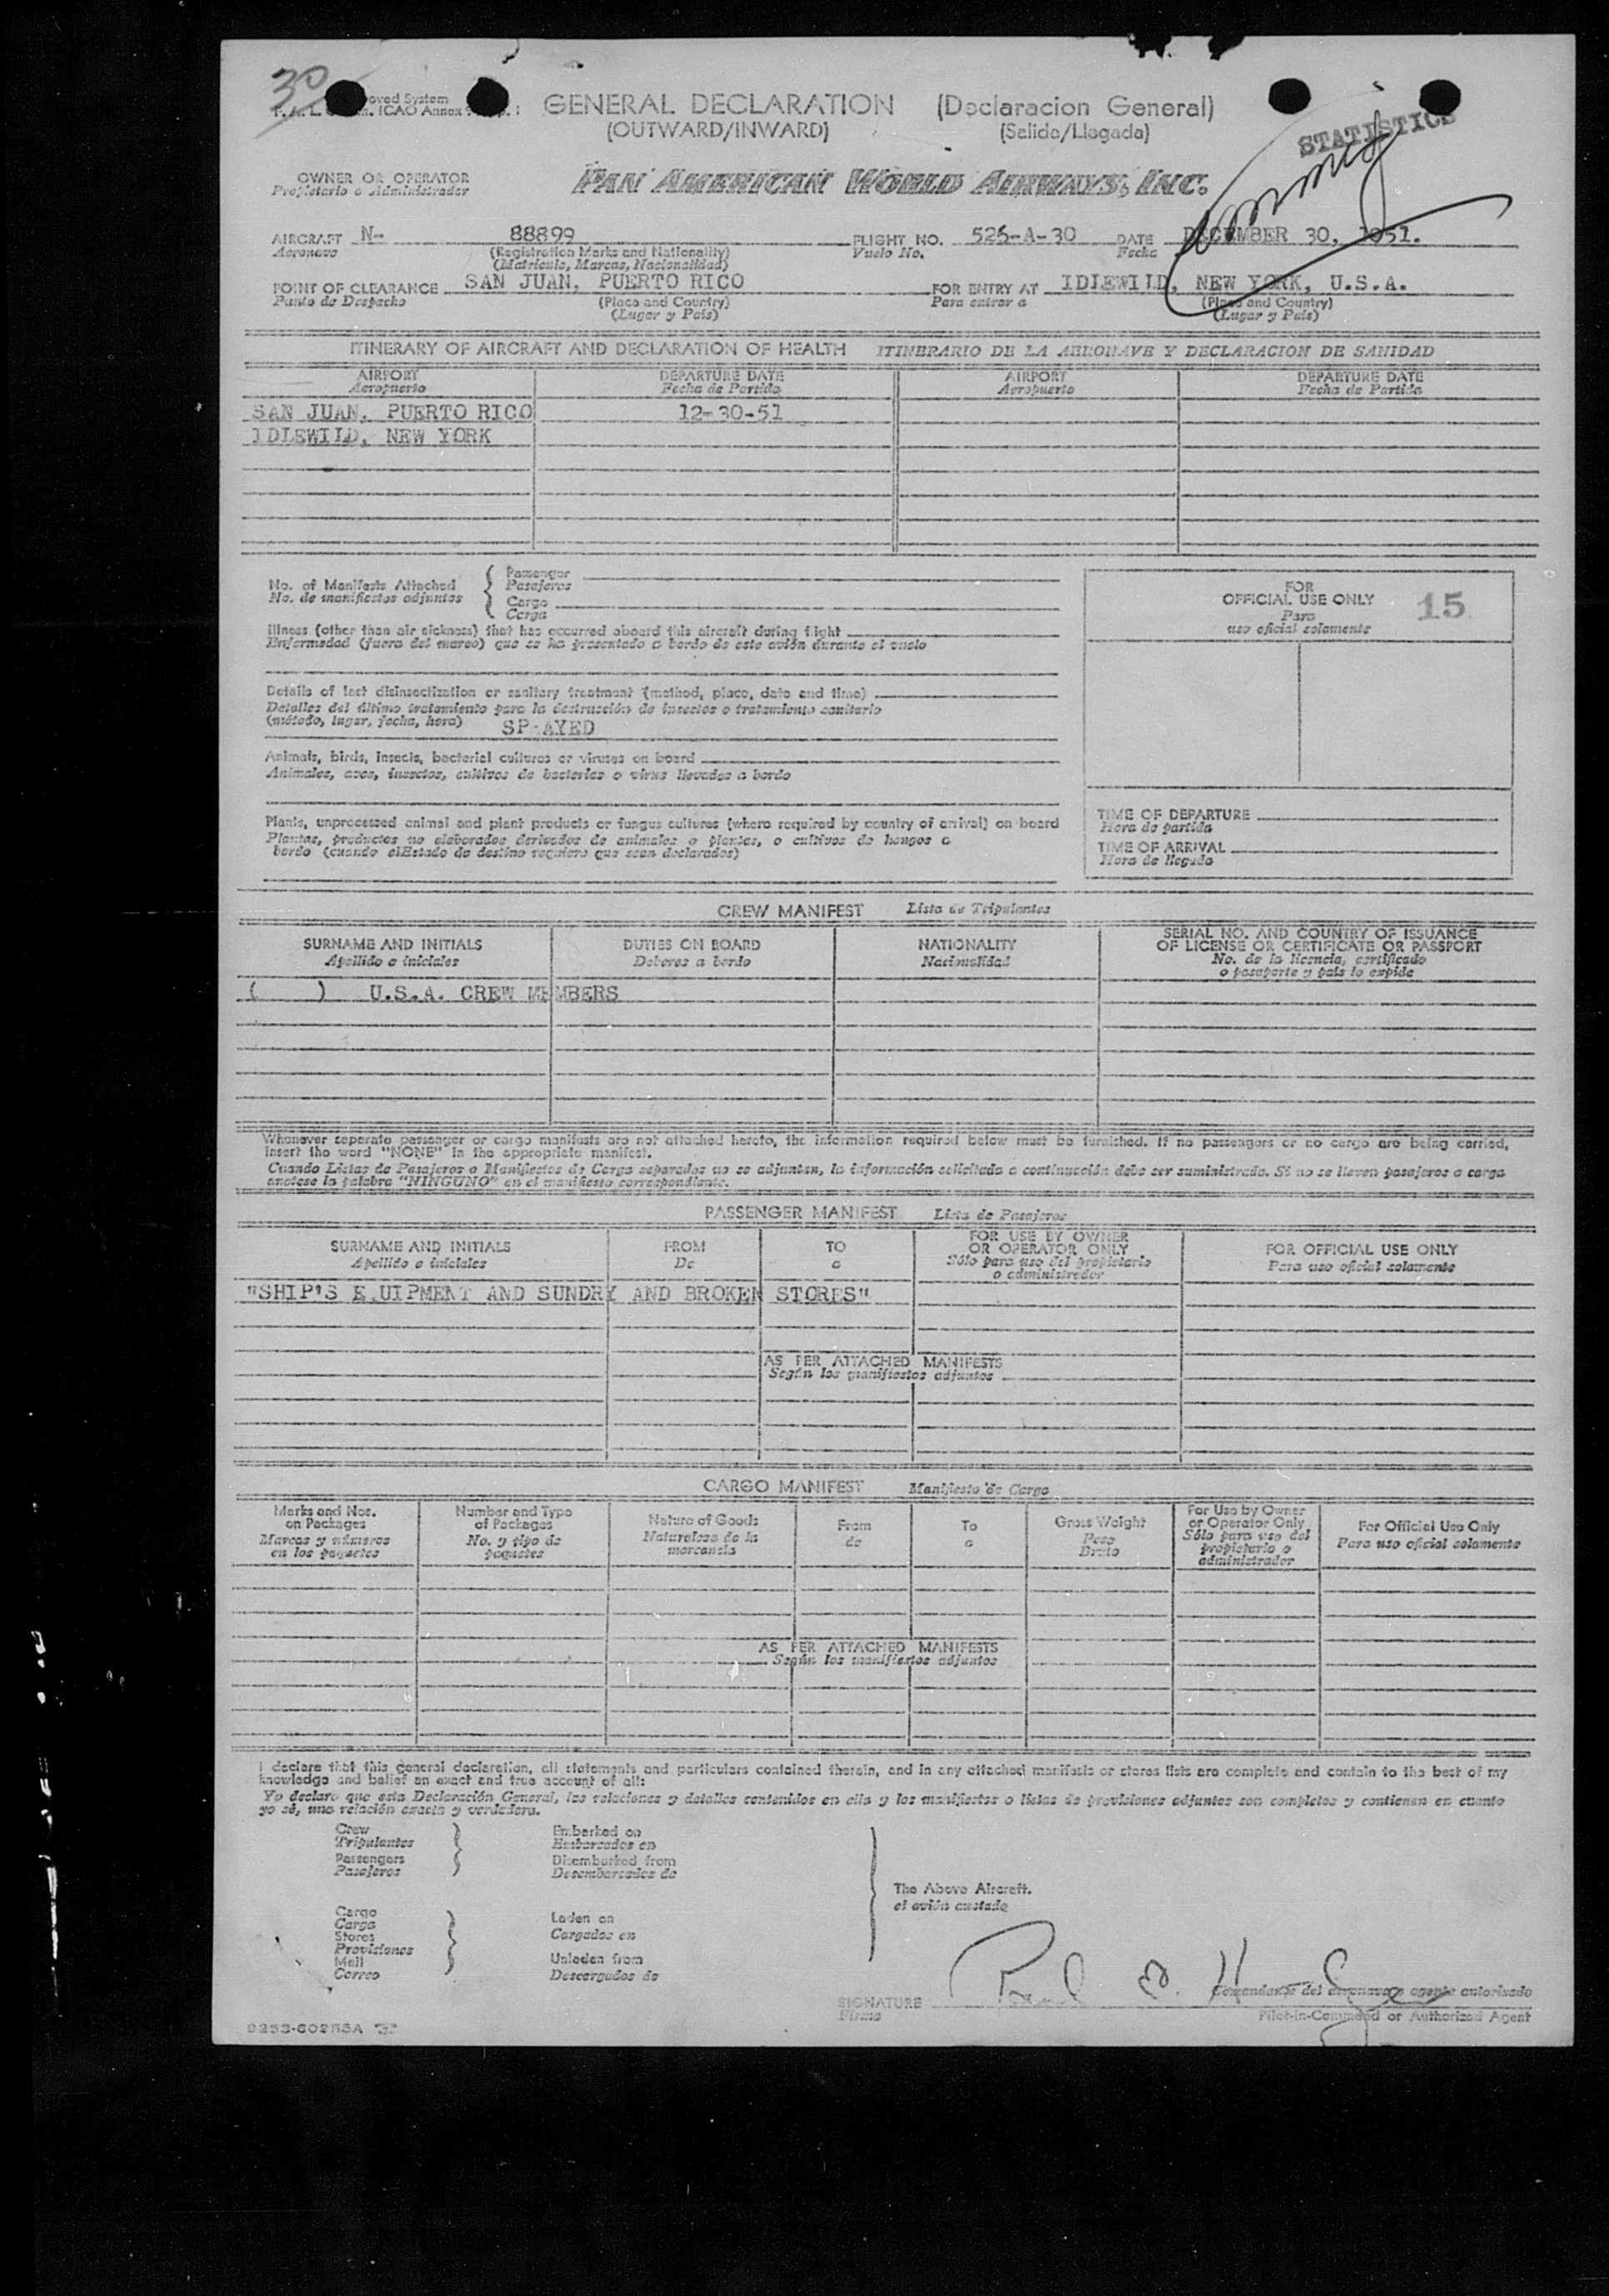 30
GENERAL DECLARATION (Declaracion General)
(OUTWARD/INWARD) (Salida/Llegada)
STATISTICS
OWNER OR OPERATOR
Propietario o Administrador
PAN AMERICAN WORLD AIRWAYS, INC.
AIRCRAFT N- 88899 FLIGHT NO. 526-A-30 DATE DECEMBER 30, 1951.
Aeronave (Registration Marks and Nationality) Vuelo No. Fecha
(Matricula, Marcas, Nacionalidad)
POINT OF CLEARANCE SAN JUAN, PUERTO RICO FOR ENTRY AT IDLEWILD, NEW YORK, U.S.A.
Punto de Despacho (Place and Country) Para entrar a (Place and Country)
(Lugar y País) (Lugar y País)
ITINERARY OF AIRCRAFT AND DECLARATION OF HEALTH ITINERARIO DE LA AERONAVE Y DECLARACION DE SANIDAD
AIRPORT DEPARTURE DATE AIRPORT DEPARTURE DATE
Aeropuerto Fecha de Partida Aeropuerto Fecha de Partida
SAN JUAN, PUERTO RICO 12-30-51
IDLEWILD, NEW YORK
No. of Manifests Attached
No. de manifiestos adjuntos
Passenger
Pasajeros
Cargo
Carga
FOR
OFFICIAL USE ONLY 15
Para
uso oficial solamente
Illness (other than air sickness) that has occurred aboard this aircraft during flight
Enfermedad (fuera del mareo) que se ha presentado a bordo de este avión durante el vuelo
Details of last disinsectization or sanitary treatment (method, place, date and time)
Detalles del último tratamiento para la destrucción de insectos o tratamiento sanitario
(método, lugar, fecha, hora) SP-AYED
Animals, birds, insects, bacterial cultures or viruses on board
Animales, aves, insectos, cultivos de bacterias o virus llevados a bordo
Plants, unprocessed animal and plant products or fungus cultures (where required by country of arrival) on board
Plantas, productos no elaborados derivados de animales o plantas, o cultivos de hongos a
bordo (cuando elEstado de destino requiera que sean declarados)
TIME OF DEPARTURE
Hora de partida
TIME OF ARRIVAL
Hora de llegada
CREW MANIFEST Lista de Tripulantes
SURNAME AND INITIALS DUTIES ON BOARD NATIONALITY SERIAL NO. AND COUNTRY OF ISSUANCE
OF LICENSE OR CERTIFICATE OR PASSPORT
Apellido e iniciales Deberes a bordo Nacionalidad No. de la licencia, certificado
o pasaporte y pais lo expide
( ) U.S.A. CREW MEMBERS
Whenever separate passenger or cargo manifests are not attached hereto, the information required below must be furnished. If no passengers or no cargo are being carried,
insert the word "NONE" in the appropriate manifest.
Cuando Listas de Pasajeros o Manifiestos de Carga separados no se adjunten, la información solicitada a continuación debe ser suministrada. Si no se lleven pasajeros o carga
anotese la palabra "NINGUNO" en el manifiesto correspondiente.
PASSENGER MANIFEST Lista de Pasajeros
SURNAME AND INITIALS FROM TO FOR USE BY OWNER
OR OPERATOR ONLY FOR OFFICIAL USE ONLY
Apellido e iniciales De a Sólo para uso del propietario
o administrador Para uso oficial solamente
"SHIP'S E UIPMENT AND SUNDRY AND BROKEN STORES"
AS PER ATTACHED MANIFESTS
Según los manifiestos adjuntos
CARGO MANIFEST Manifiesto de Carga
Marks and Nos.
on Packages
Marcas y números
en los paquetes
Number and Type
of Packages
No. y tipo de
paquetes
Nature of Goods
Naturaleza de la
mercancía
From
de
To
a
Gross Weight
Peso
Bruto
For Use by Owner
or Operator Only
Sólo para uso del
propietario o
administrador
For Official Use Only
Para uso oficial solamente
AS PER ATTACHED MANIFESTS
Según los manifiestos adjuntos
I declare that this general declaration, all statements and particulars contained therein, and in any attached manifests or stores lists are complete and contain to the best of my
knowledge and belief an exact and true account of all:
Yo declaro que esta Declaración General, las relaciones y detalles contenidos en ella y los manifiestos o listas de provisiones adjuntos son completos y contienen en cuanto
yo sé, una relación exacta y verdadera.
Crew
Tripulantes
Passengers
Pasajeros
Embarked on
Embarcados en
Disembarked from
Desembarcados de
The Above Aircraft.
el avión custado
Cargo
Carga
Stores
Provisiones
Mail
Correo
Laden on
Cargados en
Unladen from
Descargados de
SIGNATURE
Firma
Comandante del aeronave o agente autorizado
Pilot-in-Command or Authorized Agent